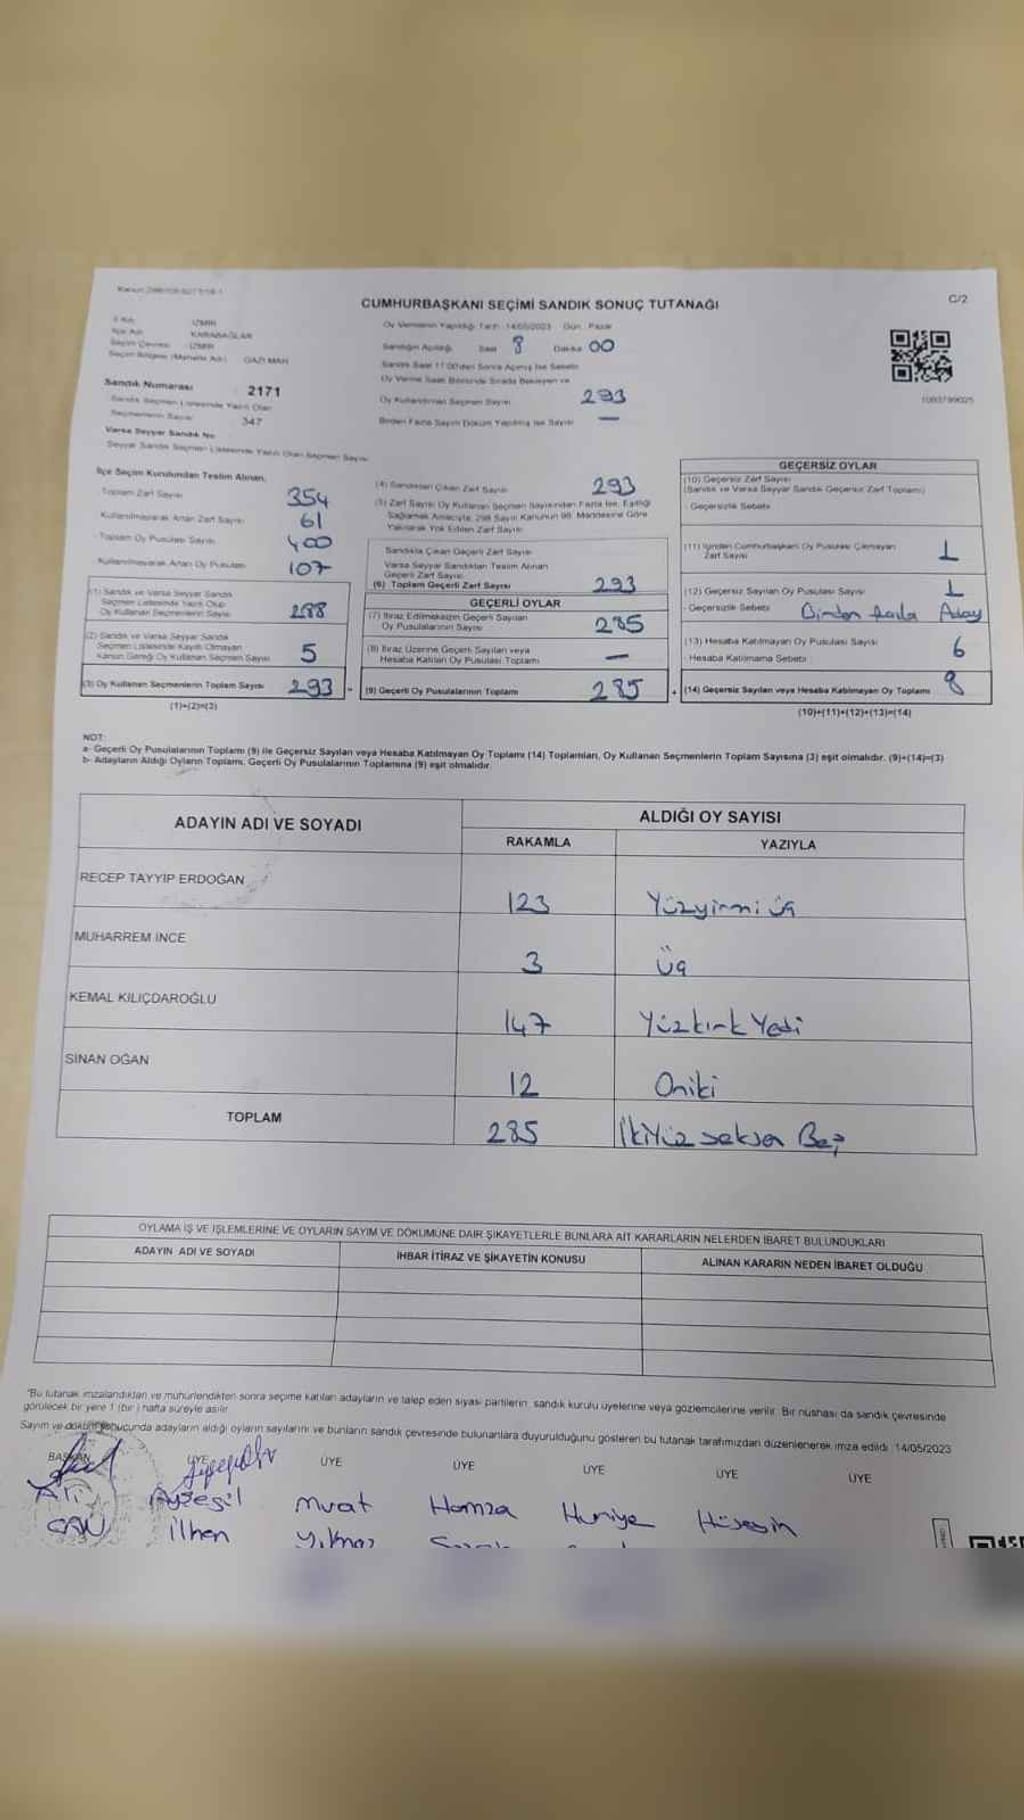 CUMHURBAŞKANI SEÇİMİ SANDIK SONUÇ TUTANAĞI
C/2
İli Adı İZMİR
İlçe Adı KARABAĞLAR
Seçim Çevresi İZMİR
Seçim Bölgesi (Mahalle Adı) GAZİ MAH
Sandık Numarası 2171
Sandık Seçmen Listesinde Yazılı Olan
Seçmenlerin Sayısı 347
Varsa Seyyar Sandık No
Seyyar Sandık Seçmen Listesinde Yazılı Olan Seçmen Sayısı
Oy Vermenin Yapıldığı Tarih 14/05/2023 Gün Pazar
Sandığın Açıldığı Saat 8 Dakika 00
Sandık Saat 17.00'den Sonra Açılmış İse Sebebi
Oy Verme Saati Bitiminde Sırada Bekleyen ve
Oy Kullandırılan Seçmen Sayısı 293
Birden Fazla Sayım Döküm Yapılmış İse Sayısı —
İlçe Seçim Kurulundan Teslim Alınan,
Toplam Zarf Sayısı 354
Kullanılmayarak Artan Zarf Sayısı 61
Toplam Oy Pusulası Sayısı 400
Kullanılmayarak Artan Oy Pusulası 107
(1) Sandık ve Varsa Seyyar Sandık
Seçmen Listesinde Yazılı Olup
Oy Kullanan Seçmenlerin Sayısı 288
(2) Sandık ve Varsa Seyyar Sandık
Seçmen Listesinde Kayıtlı Olmayan
Kanun Gereği Oy Kullanan Seçmen Sayısı 5
(3) Oy Kullanan Seçmenlerin Toplam Sayısı 293
(1)+(2)=(3)
(4) Sandıktan Çıkan Zarf Sayısı 293
(5) Zarf Sayısı Oy Kullanan Seçmen Sayısından Fazla İse, Eşitliği
Sağlamak Amacıyla, 298 Sayılı Kanunun 98. Maddesine Göre
Yakılarak Yok Edilen Zarf Sayısı
Sandıkta Çıkan Geçerli Zarf Sayısı
Varsa Seyyar Sandıktan Teslim Alınan
Geçerli Zarf Sayısı
(6) Toplam Geçerli Zarf Sayısı 293
GEÇERLİ OYLAR
(7) İtiraz Edilmeksizin Geçerli Sayılan
Oy Pusulalarının Sayısı 285
(8) İtiraz Üzerine Geçerli Sayılan veya
Hesaba Katılan Oy Pusulası Toplamı —
(9) Geçerli Oy Pusulalarının Toplamı 285
GEÇERSİZ OYLAR
(10) Geçersiz Zarf Sayısı
(Sandık ve Varsa Seyyar Sandık Geçersiz Zarf Toplamı)
Geçersizlik Sebebi
(11) İçinden Cumhurbaşkanı Oy Pusulası Çıkmayan
Zarf Sayısı 1
(12) Geçersiz Sayılan Oy Pusulası Sayısı 1
Geçersizlik Sebebi Birden fazla Aday
(13) Hesaba Katılmayan Oy Pusulası Sayısı 6
Hesaba Katılmama Sebebi
(14) Geçersiz Sayılan veya Hesaba Katılmayan Oy Toplamı 8
(10)+(11)+(12)+(13)=(14)
NOT:
a- Geçerli Oy Pusulalarının Toplamı (9) ile Geçersiz Sayılan veya Hesaba Katılmayan Oy Toplamı (14) Toplamları, Oy Kullanan Seçmenlerin Toplam Sayısına (3) eşit olmalıdır. (9)+(14)=(3)
b- Adayların Aldığı Oyların Toplamı, Geçerli Oy Pusulalarının Toplamına (9) eşit olmalıdır.
ADAYIN ADI VE SOYADI
ALDIĞI OY SAYISI
RAKAMLA YAZIYLA
RECEP TAYYİP ERDOĞAN 123 Yüzyirmi üç
MUHARREM İNCE 3 Üç
KEMAL KILIÇDAROĞLU 147 Yüzkırk Yedi
SİNAN OĞAN 12 Oniki
TOPLAM 285 İkiYüz seksen Beş
OYLAMA İŞ VE İŞLEMLERİNE VE OYLARIN SAYIM VE DÖKÜMÜNE DAİR ŞİKAYETLERLE BUNLARA AİT KARARLARIN NELERDEN İBARET BULUNDUKLARI
ADAYIN ADI VE SOYADI
İHBAR İTİRAZ VE ŞİKAYETİN KONUSU
ALINAN KARARIN NEDEN İBARET OLDUĞU
"Bu tutanak imzalandıktan ve mühürlendikten sonra seçime katılan adayların ve talep eden siyasi partilerin, sandık kurulu üyelerine veya gözlemcilerine verilir. Bir nüshası da sandık çevresinde
görülecek bir yere 1 (bir) hafta süreyle asılır.
Sayım ve döküm sonucunda adayların aldığı oyların sayılarını ve bunların sandık çevresinde bulunanlara duyurulduğunu gösteren bu tutanak tarafımızdan düzenlenerek imza edildi. 14/05/2023
BAŞKAN ÜYE ÜYE ÜYE ÜYE ÜYE ÜYE
Ali Ayşegül Murat Hamza Huriye Hüseyin
CAN İlhan Yılmaz